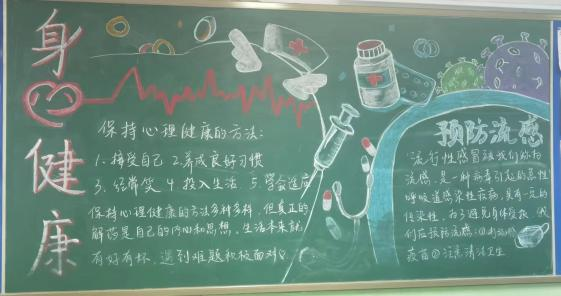 身心健康
保持心理健康的方法:
1、接受自己 2.养成良好习惯
3、经常笑 4.投入生活 5.学会适应
保持心理健康的方法多种多样，但真正的
解药是自己的内心和思想，生活本来就
有好有坏，遇到难题积极面对。
预防流感
流行性感冒被我们称为
流感，是一种病毒引起的急性
呼吸道感染性疾病，具有一定的
传染性，为了避免自身受扰 我
们应预防流感:①
疫苗②注意清洁卫生